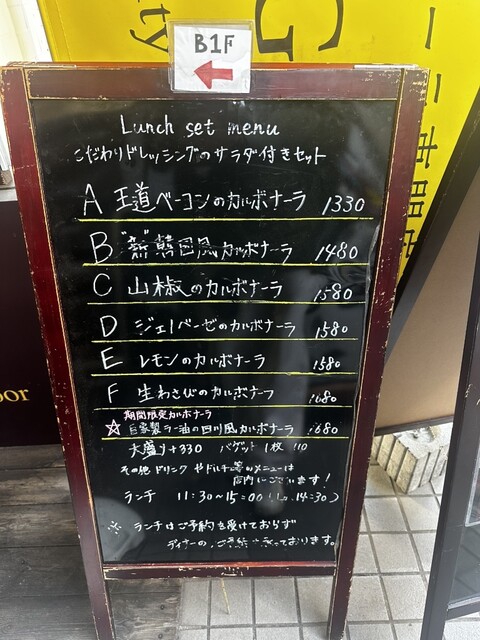 B1F
Lunch set menu
こだわりドレッシングのサラダ付きセット
A 王道ベーコンのカルボナーラ 1330
B "新"韓国風カルボナーラ 1480
C 山椒のカルボナーラ 1580
D ジェノベーゼのカルボナーラ 1580
E レモンのカルボナーラ 1580
F 生わさびのカルボナーラ 1680
期間限定カルボナーラ
☆ 自家製ラー油の四川風カルボナーラ 1680
大盛り+330 バゲット1枚 110
その他ドリンクやドルチェ等のメニューは
店内にございます!
ランチ 11:30~15:00 (L.o. 14:30)
※ ランチはご予約を受けておらず
ディナーのご予約承っております。
oor